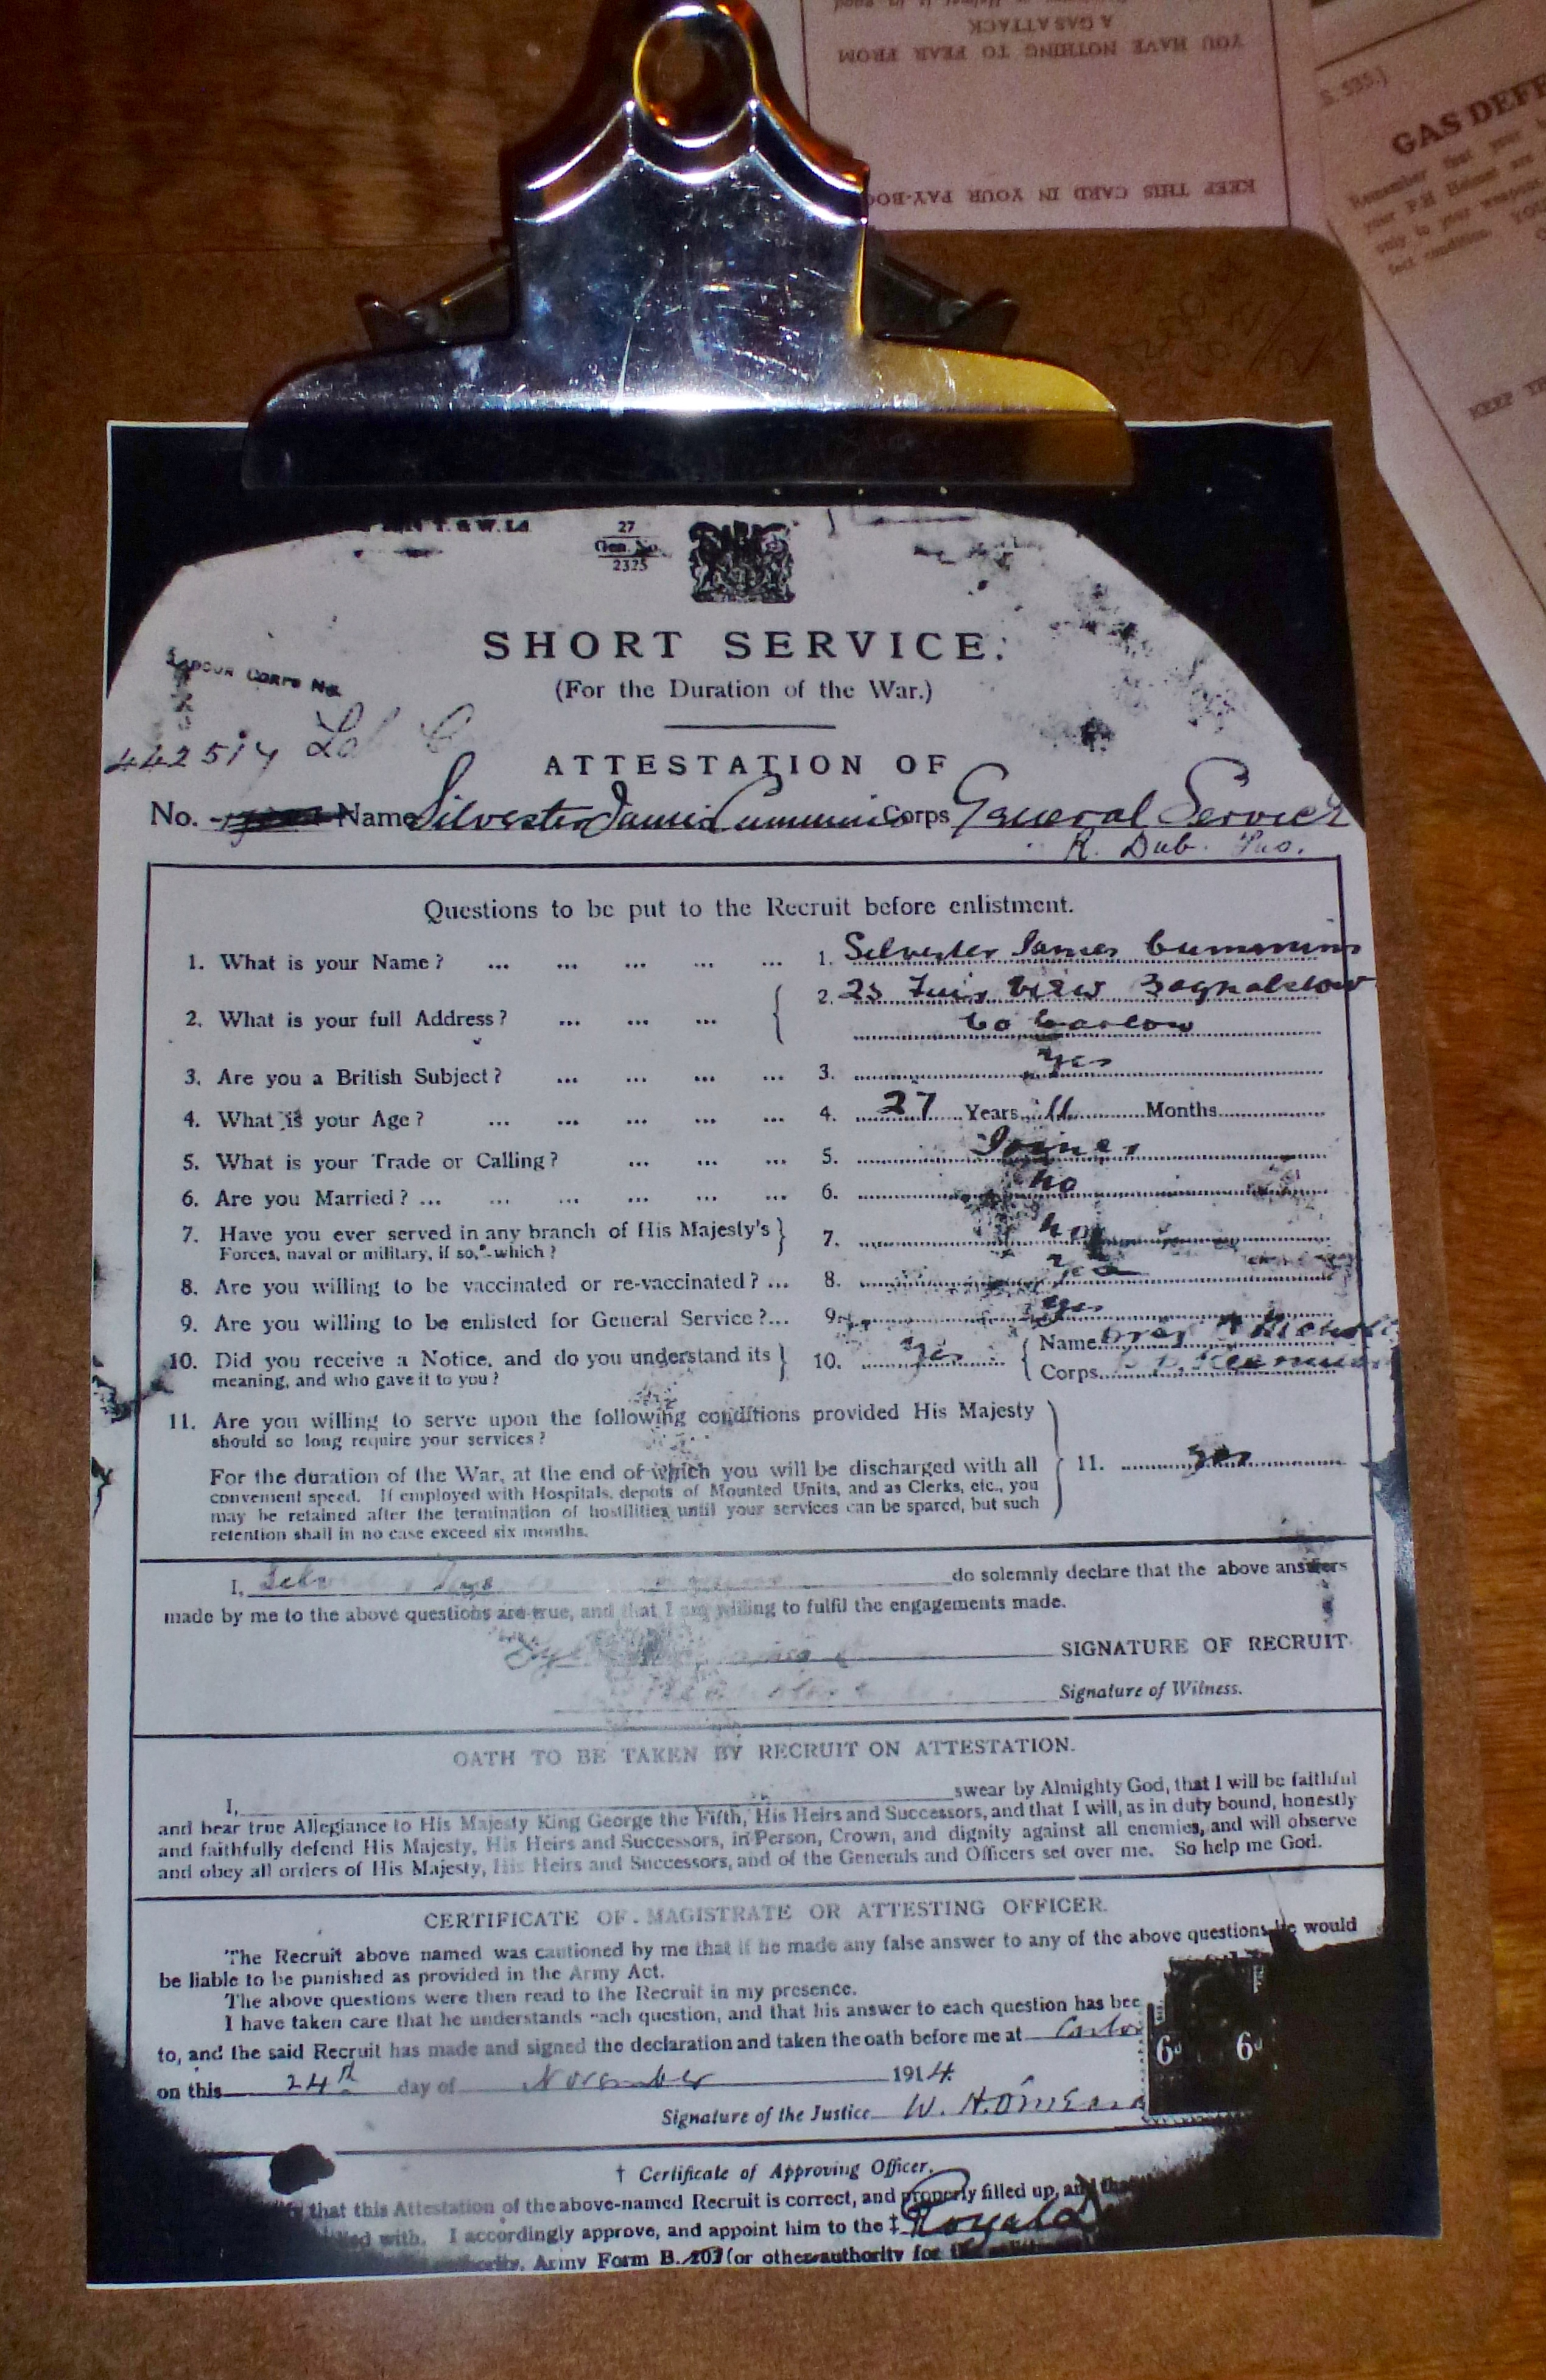 YOU HAVE NOTHING TO FEAR FROM
A GAS ATTACK
KEEP THIS CARD IN YOUR PAY-BOO
S. 535.)
GAS DEFE
Remember that your
your P.H Helmet are
only is your weapons
fect condition. YOU
KEEP TH
T. & W. Ld
27
Gen. No.
2325
SHORT SERVICE.
(For the Duration of the War.)
LABOUR CORPS No.
442514
ATTESTATION OF
No. Name Silvester James Cummins Corps General Service
R. Dub. Fus.
Questions to be put to the Recruit before enlistment.
1. What is your Name? ... ... ... ... ... 1. Silvester James Cummins
2. What is your full Address? ... ... ... 2. 23 View Bagnalstown
Co Carlow
3. Are you a British Subject? ... ... ... ... 3. Yes
4. What is your Age? ... ... ... ... ... 4. 27 Years 11 Months
5. What is your Trade or Calling? ... ... ... 5. Joiner
6. Are you Married? ... ... ... ... ... ... 6. No
7. Have you ever served in any branch of His Majesty's
Forces, naval or military, if so, which? 7. No
8. Are you willing to be vaccinated or re-vaccinated? ... 8. Yes
9. Are you willing to be enlisted for General Service?... 9. Yes
10. Did you receive a Notice, and do you understand its
meaning, and who gave it to you? 10. Yes Name
Corps
11. Are you willing to serve upon the following conditions provided His Majesty
should so long require your services?
For the duration of the War, at the end of which you will be discharged with all 11. Yes
convenient speed. If employed with Hospitals, depots of Mounted Units, and as Clerks, etc., you
may be retained after the termination of hostilities until your services can be spared, but such
retention shall in no case exceed six months.
I, do solemnly declare that the above answers
made by me to the above questions are true, and that I am willing to fulfil the engagements made.
SIGNATURE OF RECRUIT
Signature of Witness.
OATH TO BE TAKEN BY RECRUIT ON ATTESTATION.
I, swear by Almighty God, that I will be faithful
and bear true Allegiance to His Majesty King George the Fifth, His Heirs and Successors, and that I will, as in duty bound, honestly
and faithfully defend His Majesty, His Heirs and Successors, in Person, Crown, and dignity against all enemies, and will observe
and obey all orders of His Majesty, His Heirs and Successors, and of the Generals and Officers set over me. So help me God.
CERTIFICATE OF MAGISTRATE OR ATTESTING OFFICER.
The Recruit above named was cautioned by me that if he made any false answer to any of the above questions he would
be liable to be punished as provided in the Army Act.
The above questions were then read to the Recruit in my presence.
I have taken care that he understands each question, and that his answer to each question has bee
to, and the said Recruit has made and signed the declaration and taken the oath before me at Carlo
on this 24th day of November 1914.
6d 6d
Signature of the Justice W. H.
† Certificate of Approving Officer.
that this Attestation of the above-named Recruit is correct, and properly filled up, and that
with. I accordingly approve, and appoint him to the ‡ Royal D
Army Form B. 203 (or other authority for the